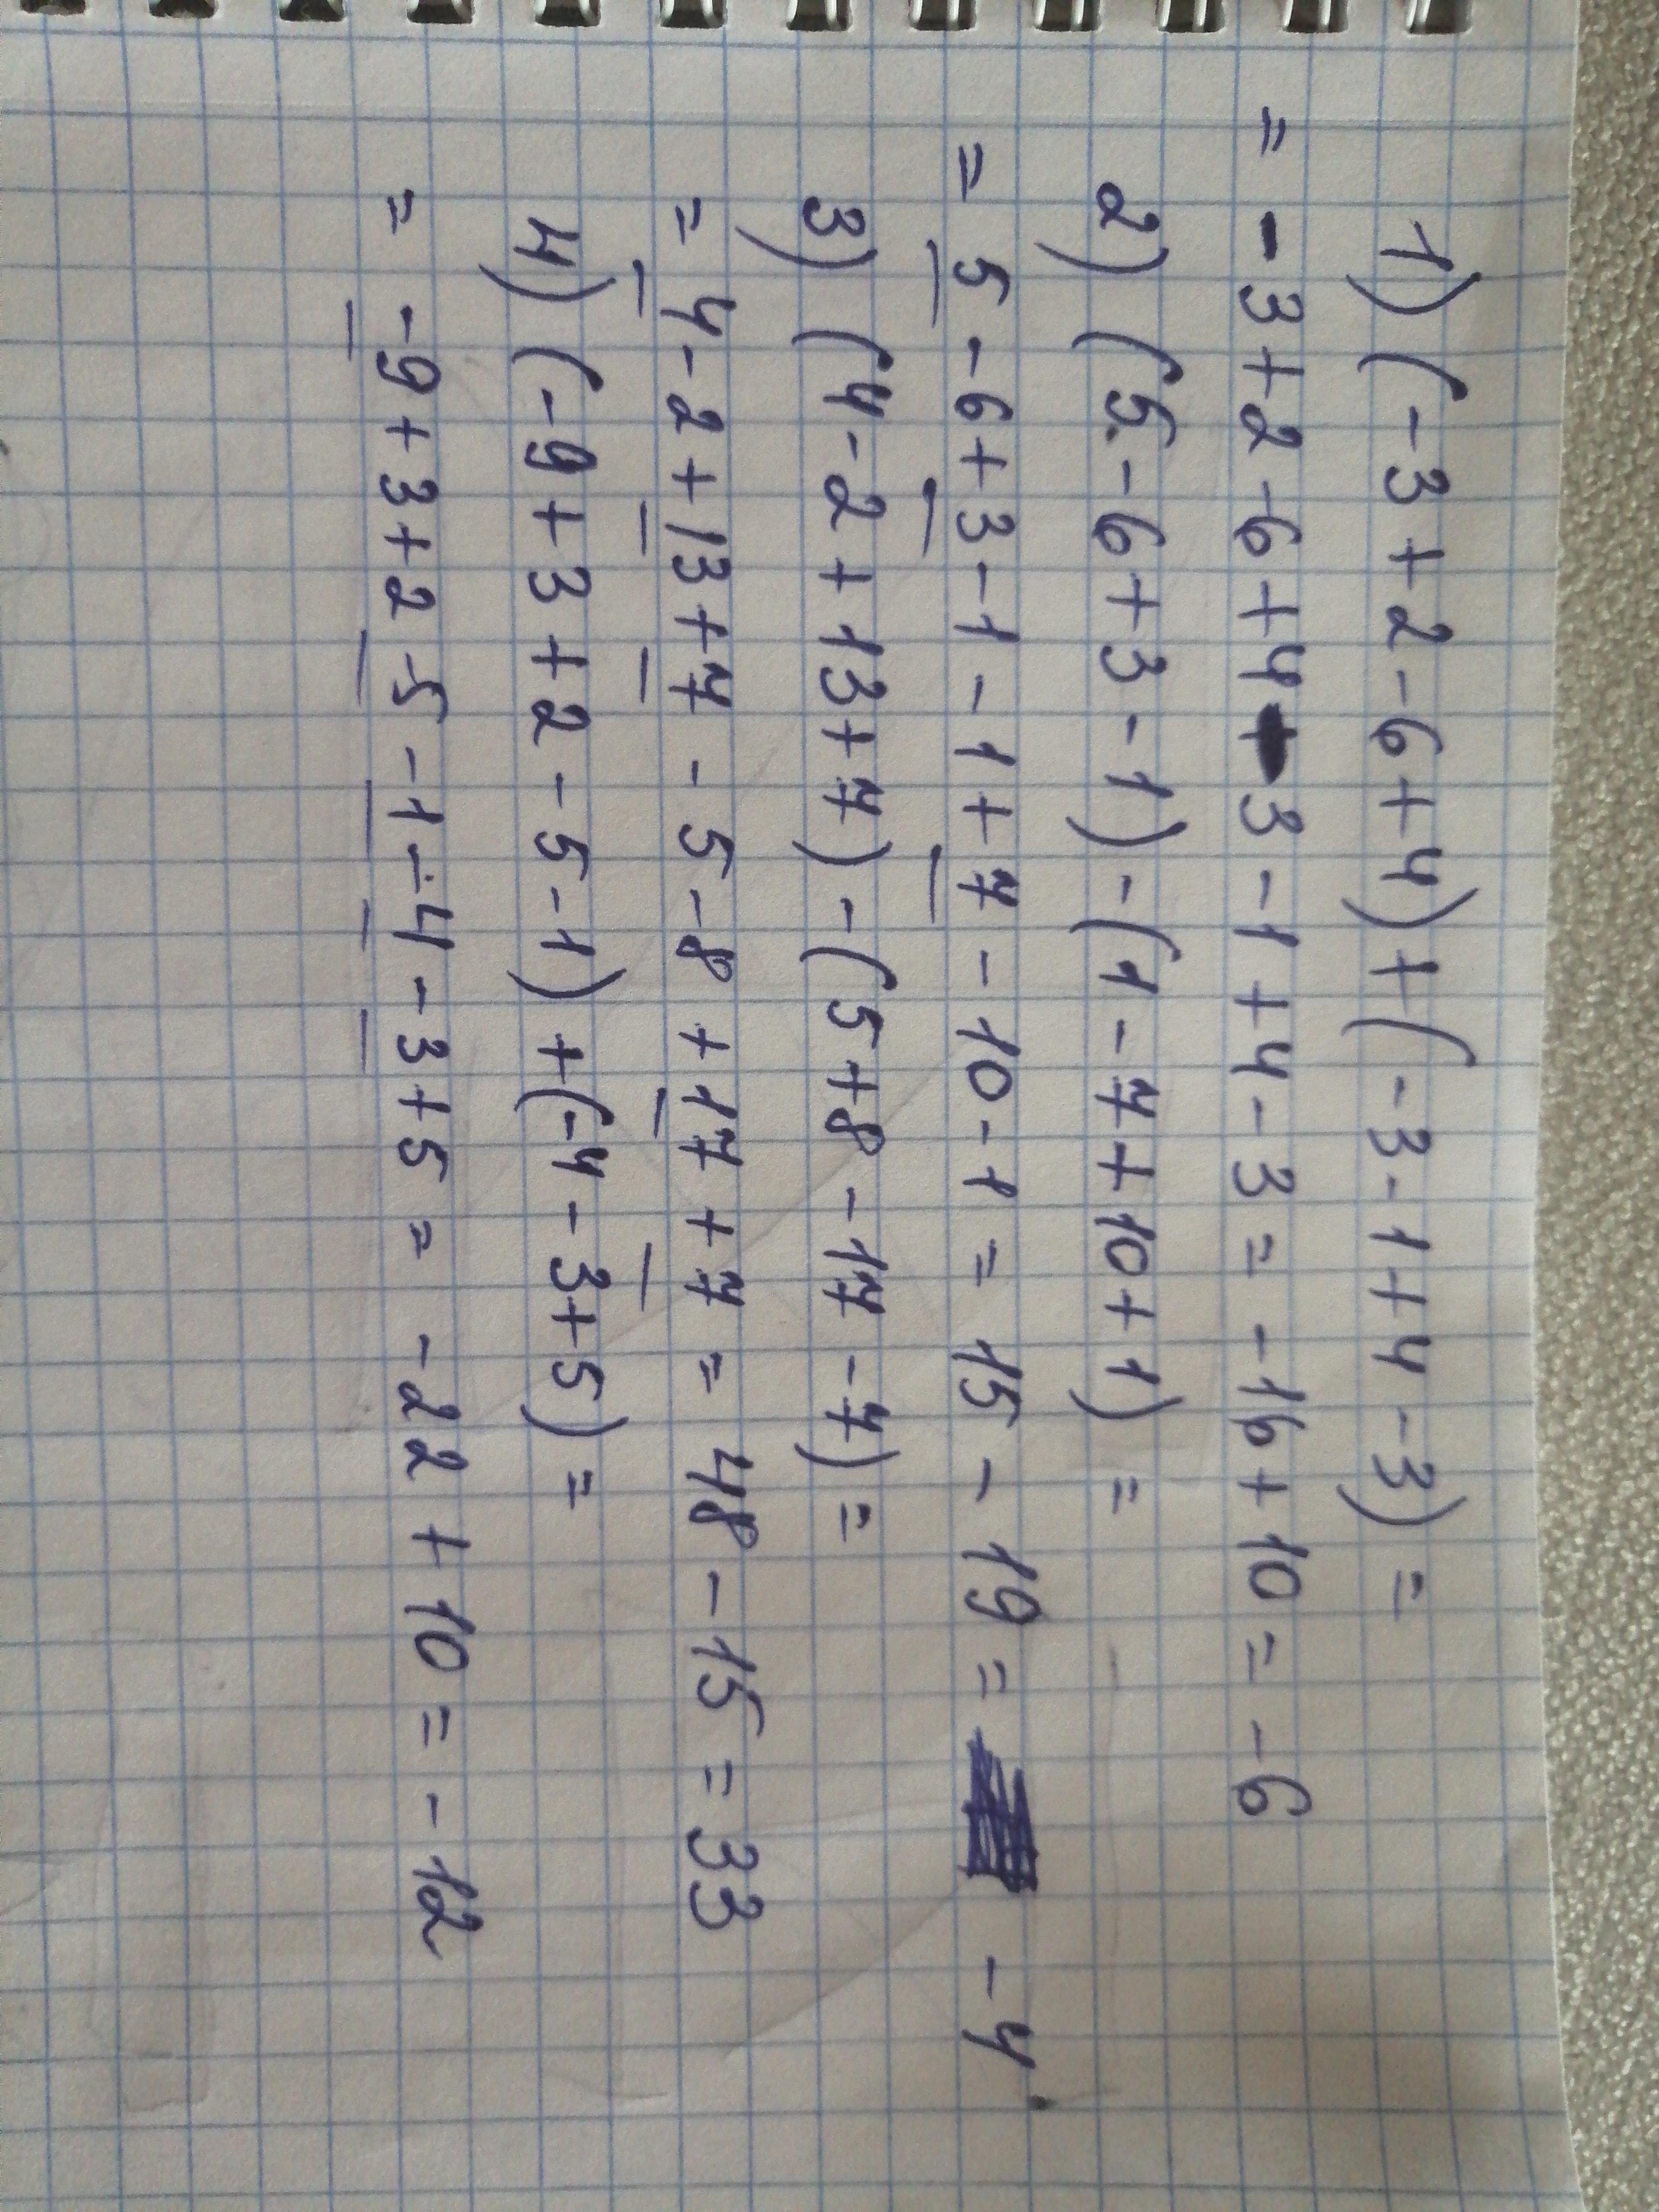 1) (-3+2-6+4)+(-3-1+4-3)=
= -3+2-6+4-3-1+4-3=-16+10=-6
2) (5-6+3-1)-(1-7+10+1)=
= 5-6+3-1-1+7-10-1=15-19= -4
3) (4-2+13+7)-(5+8-17-7)=
= 4-2+13+7-5-8+17+7=48-15=33
4) (-9+3+2-5-1)+(-4-3+5)=
= -9+3+2-5-1-4-3+5=-22+10=-12